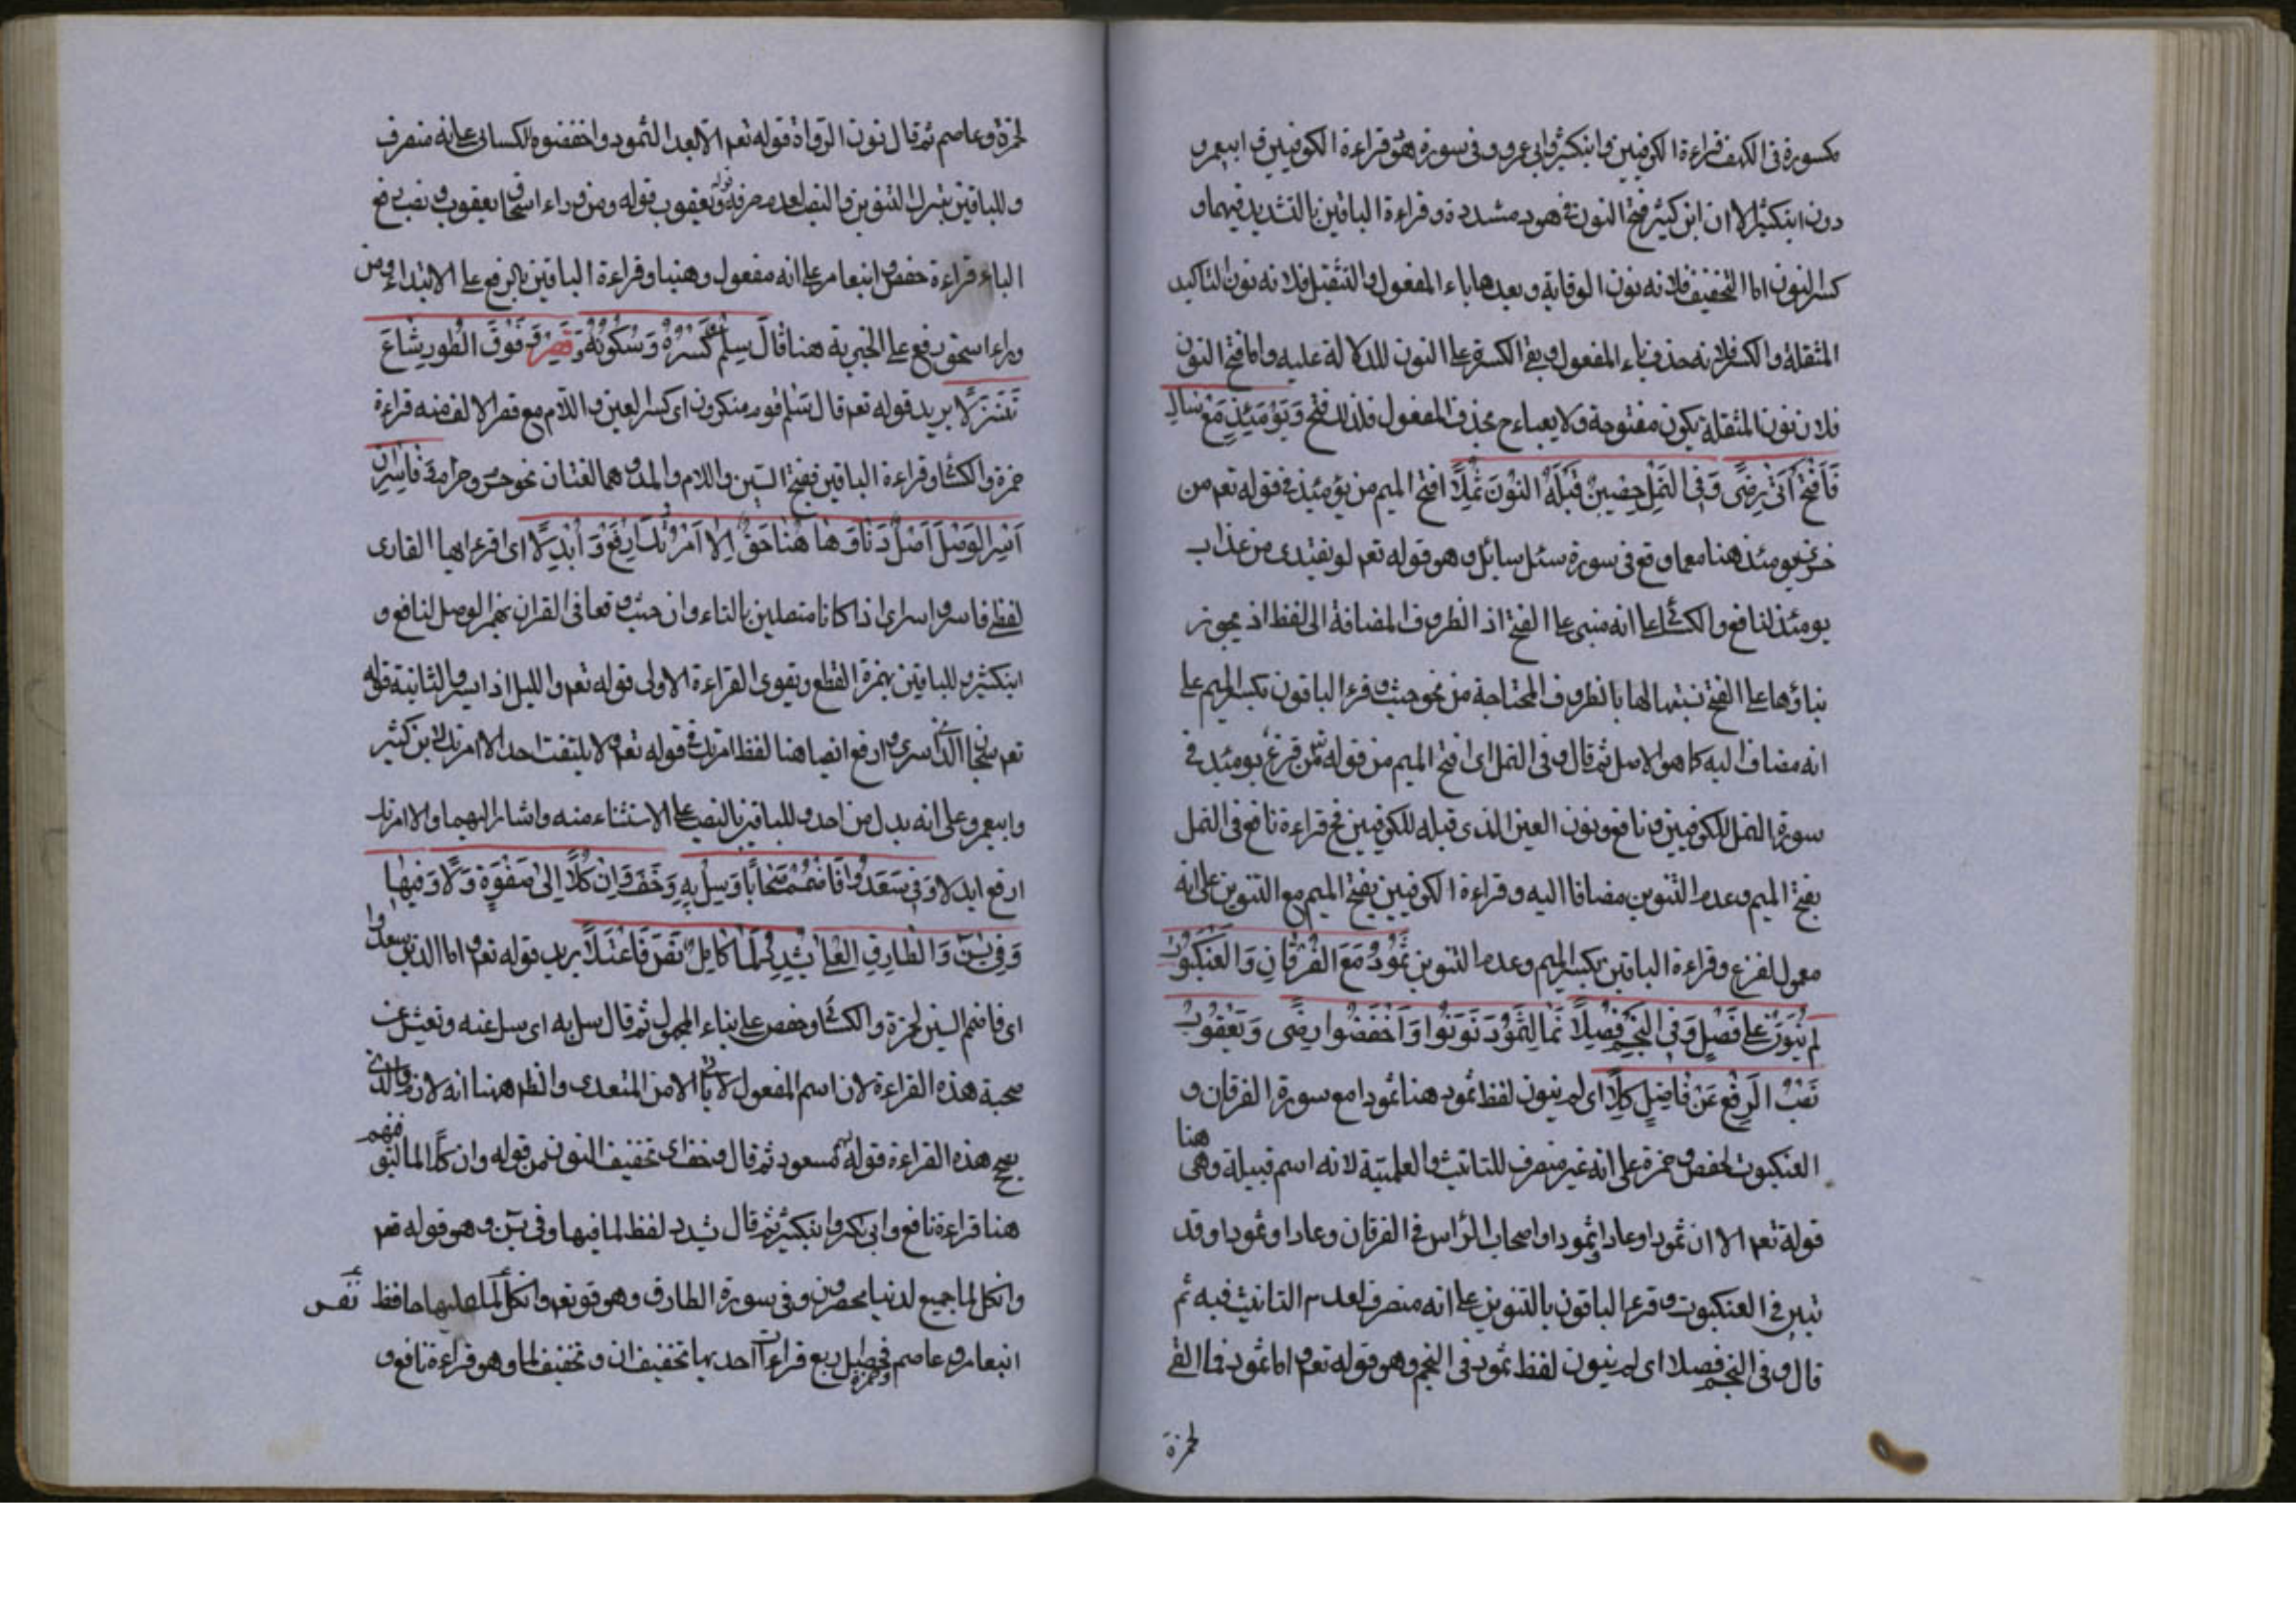 مكسورة فى الكهف قراءة الكوفيين وابنكثير وابى عمرو وفى سورة هود قراءة الكوفيين وابيعمرو
دون ابنكثير الا ان ابن كثير فتح النون فى هود مشددة وقراءة الباقين بالتشديد فيهما و
كسر النون اما التخفيف فلانه نون الوقاية وبعدها ياء المفعول والتثقيل فلانه نون التاكيد
المثقلة والكسر فلانه حذف ياء المفعول وبقى الكسرة على النون للدلالة عليه واما فتح النون
فلان نون المثقلة يكون مفتوحة ولا يعباء ح بحذف المفعول فلذلك فتح وَيَوْمَئِذٍ مَعْ سَالَ
فَافْتَحْ اَتٰى رِضًى وَفِى النَّمْلِ حِصْنٌ قَبْلَهُ النُّونَ ثُمِّلَا افتح الميم من يومئذ فى قوله تعم من
خزى يومئذ هنا مع ما وقع فى سورة سئل سائل وهو قوله تعم لو يفتدى من عذاب
يومئذ لنافع والكسائى على انه مبنى على الفتح اذ الظروف المضافة الى لفظ اذ يجوز
بناؤها على الفتح تشبيها لها بالظروف المحتاجة من نحو حيث وقرء الباقون بكسر الميم على
انه مضاف اليه كما هو الاصل ثم قال وفى النمل اى افتح الميم من قوله من فزع يومئذ فى
سورة النمل للكوفيين ونافع ونون العين الذى قبله للكوفيين فح قراءة نافع فى النمل
بفتح الميم وعدم التنوين مضافا اليه وقراءة الكوفيين بفتح الميم مع التنوين على انه
معمول لفزع وقراءة الباقين بكسر الميم وعدم التنوين ثَمُودَ مَعَ الْفُرْقَانِ وَالْعَنْكَبُوتِ
لَمْ يُنَوَّنْ عَلٰى فَصْلٍ وَفِى النَّجْمِ فُصِّلَا نَمَا لِثَمُودَ نَوِّنُوا وَاخْفِضُوا رِضًى وَيَعْقُوبُ
نَصْبُ الرَّفْعِ عَنْ فَاضِلٍ كَلَا اى لم ينون لفظ ثمود هنا ثمودا مع سورة الفرقان و
العنكبوت لحفص وحمزة على انه غير منصرف للتانيث والعلمية لانه اسم قبيلة وهى هنا
قوله تعم الا ان ثمودا وعادا وثمودا واصحاب الراس فى الفرقان وعادا وثمودا وقد
تبين فى العنكبوت وقرء الباقون بالتنوين على انه منصرف لعدم التانيث فيه ثم
قال وفى النجم فصلا اى لم ينون لفظ ثمود فى النجم وهو قوله تعم اما ثمود فما ابقى
لحمزة
لحمزة وعاصم ثم قال نون الرواة قوله تعم الا بعدا لثمود واخفضوه للكسائى على انه منصرف
وللباقين بترك التنوين والنصب لعدم صرفه ويعقوب قوله ومن وراء اسحاق يعقوب فى نصب رفع
الباء قراءة حفص وابنعامر على انه مفعول وهبنا وقراءة الباقين بالرفع على الابتداء ومن
وراء اسحق رفع على الخبرية هنا قَالَ سِلْمٌ كَسْرُهُ وَسُكُونُهُ وَقَصْرٌ وَفَوْقَ الطُّورِ شَاعَ
تَنَزُّلَا يريد قوله تعم قال سلم قوم منكرون اى كسر العين واللام مع قصر الالف منه قراءة
حمزة والكسائى وقراءة الباقين بفتح السين واللام والمد وهما لغتان نحو حرم وحرام فَاسْرِ اَنِ
اَسْرِ الْوَصْلُ اَصْلٌ دَنَا وَهَا هُنَا حَقٌّ اِلَّا امْرَأَتَكَ ارْفَعْ وَاَبْدِلَا اى اقرء ايها القارى
لفظ فاسر واسر اذا كانا متصلين بالفاء وان حيث وقعا فى القران بهمز الوصل لنافع و
ابنكثير وللباقين بهمزة القطع ويقوى القراءة الاولى قوله تعم والليل اذا يسر والثانية قوله
تعم سبحان الذى اسرى وارفع ايضا هنا لفظ امراتك فى قوله تعم ولا يلتفت احد الا امرتك لابن كثير
وابيعمرو على انه بدل من احد وللباقين بالنصب على الاستثناء منه واشار اليهما والا امرتك
ارفع ابدلا وَفِى سَعِدُوا فَاضْمُمْ صَحَابًا وَسَلْ بِهِ وَخِفُّ وَاِنْ كُلًّا اِلٰى صَفْوِهِ دَلَا وَفِيهَا
وَفِى يٰسٓ وَالطَّارِقِ الْعُلٰى يُشَدِّدُ لَمَّا كَامِلٌ نَصَّ فَاعْتَلَا يريد قوله تعم واما الذين سعدوا
اى فاضم السين لحمزة والكسائى وحفص على بناء المجهول ثم قال سل به اى سل عنه وتعيش عن
صحبة هذه القراءة لان اسم المفعول لا ياتى الا من المتعدى والظم ههنا انه لازم والذى
يصح هذه القراءة قولهم مسعود ثم قال وخف اى تخفيف النون من قوله وان كلا لما ليوفينهم
هنا قراءة نافع وابى بكر وابنكثير ثم قال يشدد لفظ لما فيها وفى يس وهو قوله تعم
وانكل لما جميع لدينا محضرون وفى سورة الطارق وهو قو تعم وانكل نفس لما عليها حافظ
ابنعامر وعاصم وحمزة فحصل اربع قراءات احديها تخفيف ان وتخفيف لما وهو قراءة نافع و